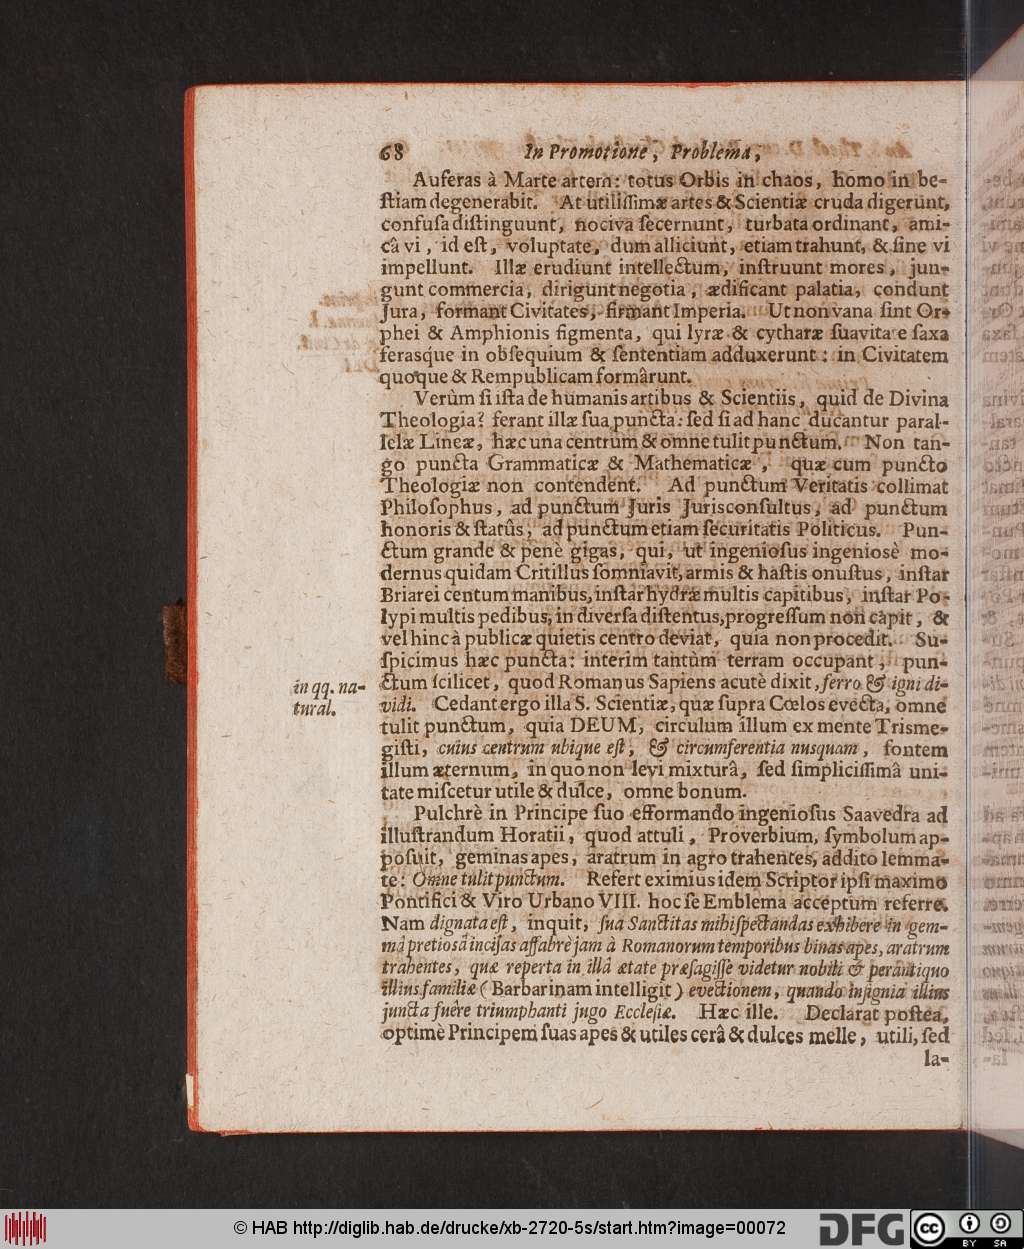 68 In Promotione, Problema,
Auferas à Marte artem: totus Orbis in chaos, homo in be-
ſtiam degenerabit. At utiliſſimæ artes & Scientiæ cruda digerunt,
confuſa diſtinguunt, nociva ſecernunt, turbata ordinant, ami-
câ vi, id eſt, voluptate, dum alliciunt, etiam trahunt, & ſine vi
impellunt. Illæ erudiunt intellectum, inſtruunt mores, jun-
gunt commercia, dirigunt negotia, ædificant palatia, condunt
Jura, formant Civitates, firmant Imperia. Ut non vana ſint Or-
phei & Amphionis figmenta, qui lyræ & cytharæ ſuavita e ſaxa
feraſq́ue in obſequium & ſententiam adduxerunt: in Civitatem
quoque & Rempublicam formârunt.
Verùm ſi iſta de humanis artibus & Scientiis, quid de Divina
Theologia? ferant illæ ſua puncta: ſed ſi ad hanc ducantur paral-
lelæ Lineæ, hæc una centrum & omne tulit punctum. Non tan-
go puncta Grammaticæ & Mathematicæ, quæ cum puncto
Theologiæ non contendent. Ad punctum Veritatis collimat
Philoſophus, ad punctum Juris Jurisconſultus, ad punctum
honoris & ſtatûs, ad punctum etiam ſecuritatis Politicus. Pun-
ctum grande & penè gigas, qui, ut ingenioſus ingeniosè mo-
dernus quidam Critillus ſomniavit, armis & haſtis onuſtus, inſtar
Briarei centum manibus, inſtar hydræ multis capitibus, inſtar Po-
lypi multis pedibus, in diverſa diſtentus, progreſſum non capit, &
vel hinc à publicæ quietis centro deviat, quia non procedit. Su-
ſpicimus hæc puncta: interim tantùm terram occupant, pun-
in qq. na- ctum ſcilicet, quod Romanus Sapiens acutè dixit, ferro & igni di-
tural. vidi. Cedant ergo illa S. Scientiæ, quæ ſupra Cœlos evecta, omne
tulit punctum, quia DEUM, circulum illum ex mente Trisme-
giſti, cuius centrum ubique eſt, & circumferentia nusquam, fontem
illum æternum, in quo non levi mixturâ, ſed ſimpliciſſimâ uni-
tate miſcetur utile & dulce, omne bonum.
Pulchrè in Principe ſuo efformando ingenioſus Saavedra ad
illuſtrandum Horatii, quod attuli, Proverbium, ſymbolum ap-
poſuit, geminas apes, aratrum in agro trahentes, addito lemma-
te: Omne tulit punctum. Refert eximius idem Scriptor ipſi maximo
Pontifici & Viro Urbano VIII. hoc ſe Emblema acceptum referre.
Nam dignata eſt, inquit, ſua Sanctitas mihi ſpectandas exhibere in gem-
mâ pretiosâ inciſas affabrè jam à Romanorum temporibus binas apes, aratrum
trahentes, quæ reperta in illâ ætate præſagiſſe videtur nobili & perantiquo
illius familiæ (Barbarinam intelligit) evectionem, quando inſignia illius
juncta fuêre triumphanti jugo Eccleſiæ. Hæc ille. Declarat poſtea,
optimè Principem ſuas apes & utiles cerâ & dulces melle, utili, ſed
la-
© HAB http://diglib.hab.de/drucke/xb-2720-5s/start.htm?image=00072
DFG
cc
BY SA